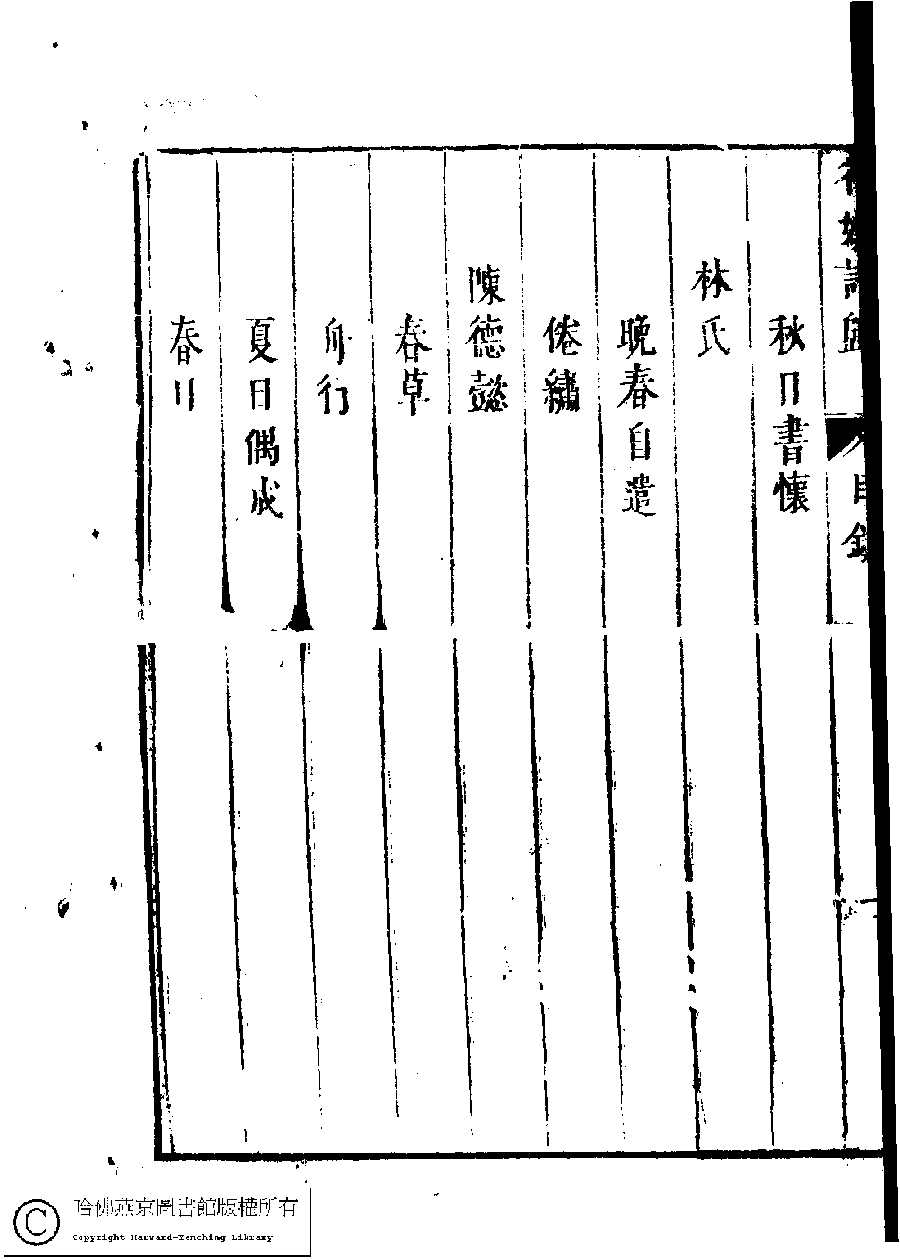 秋日書懷
林氏
晚春自遣
倦繡
陳德懿
春草
舟行
夏日偶成
春日
哈佛燕京圖書館版權所有
Copyright Harvard-Yenching Library